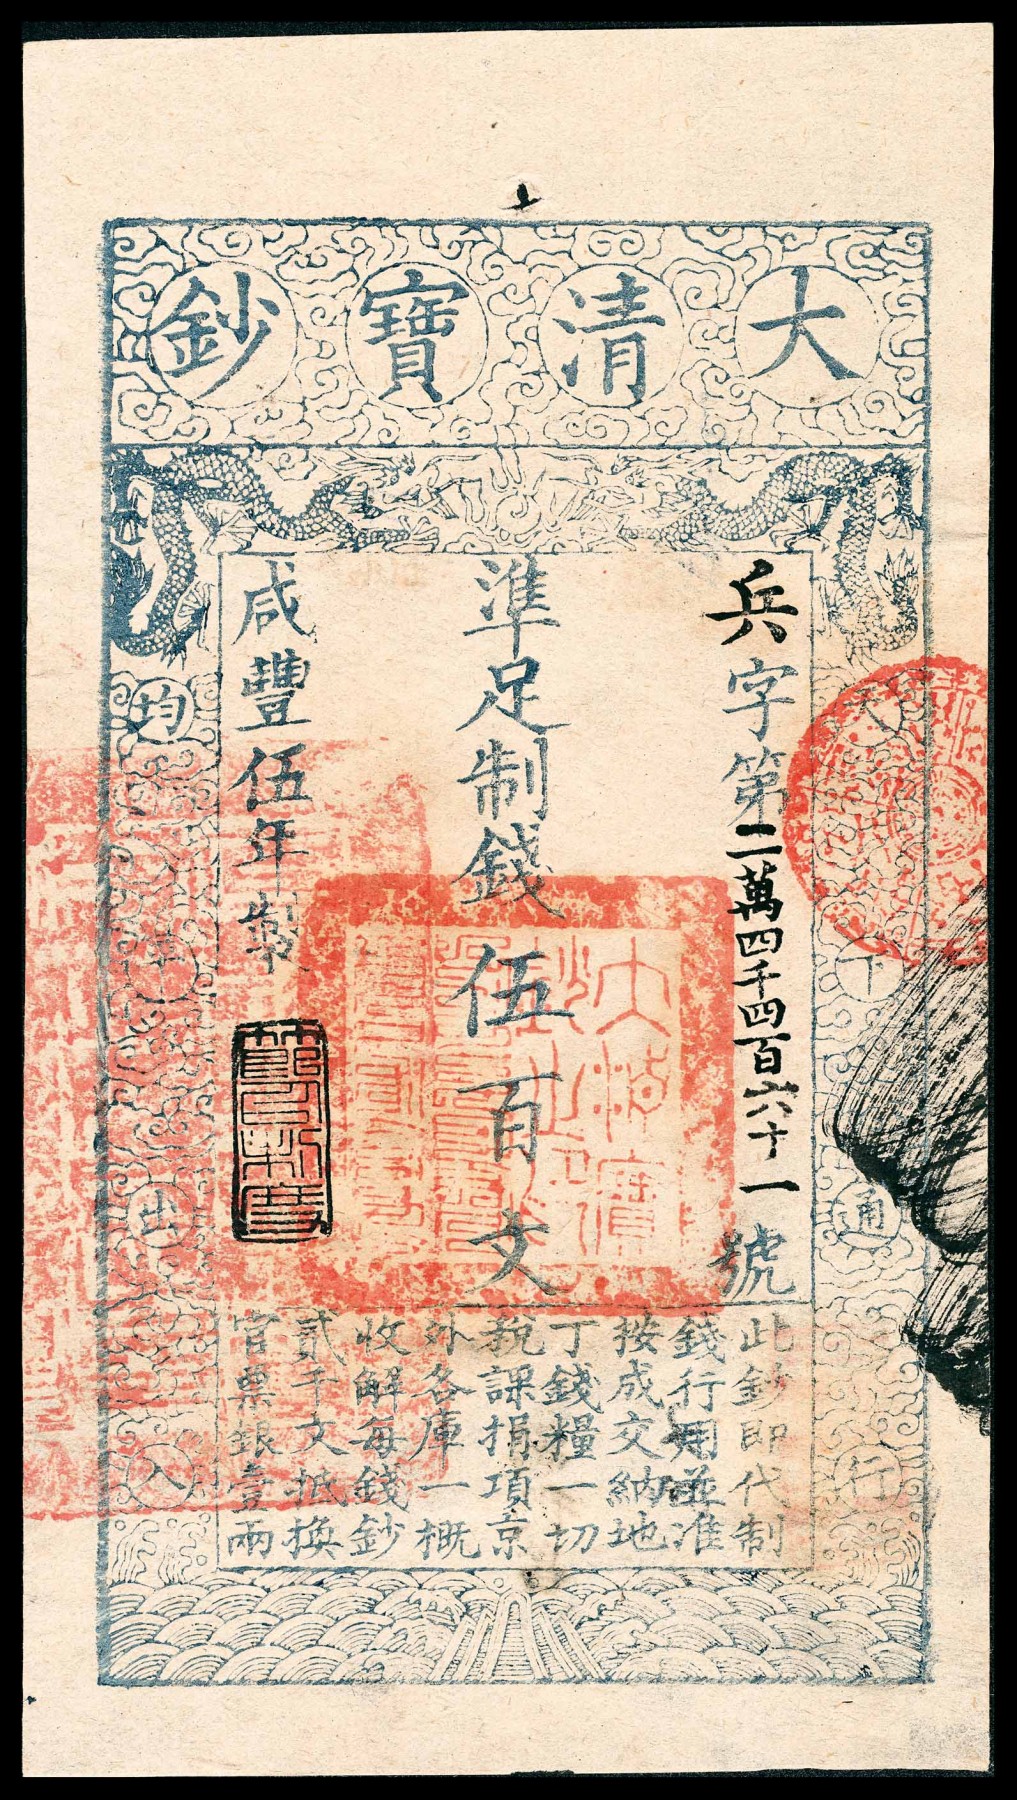 大清寶鈔
兵字第二萬四千四百六十一號
準足制錢伍百文
咸豐伍年製
天下通行
均平出入
此鈔即代制
錢行用並准
按成交納地
丁錢糧一切
稅課捐項京
外各庫一概
收解每錢鈔
貳千文抵換
官票銀壹兩